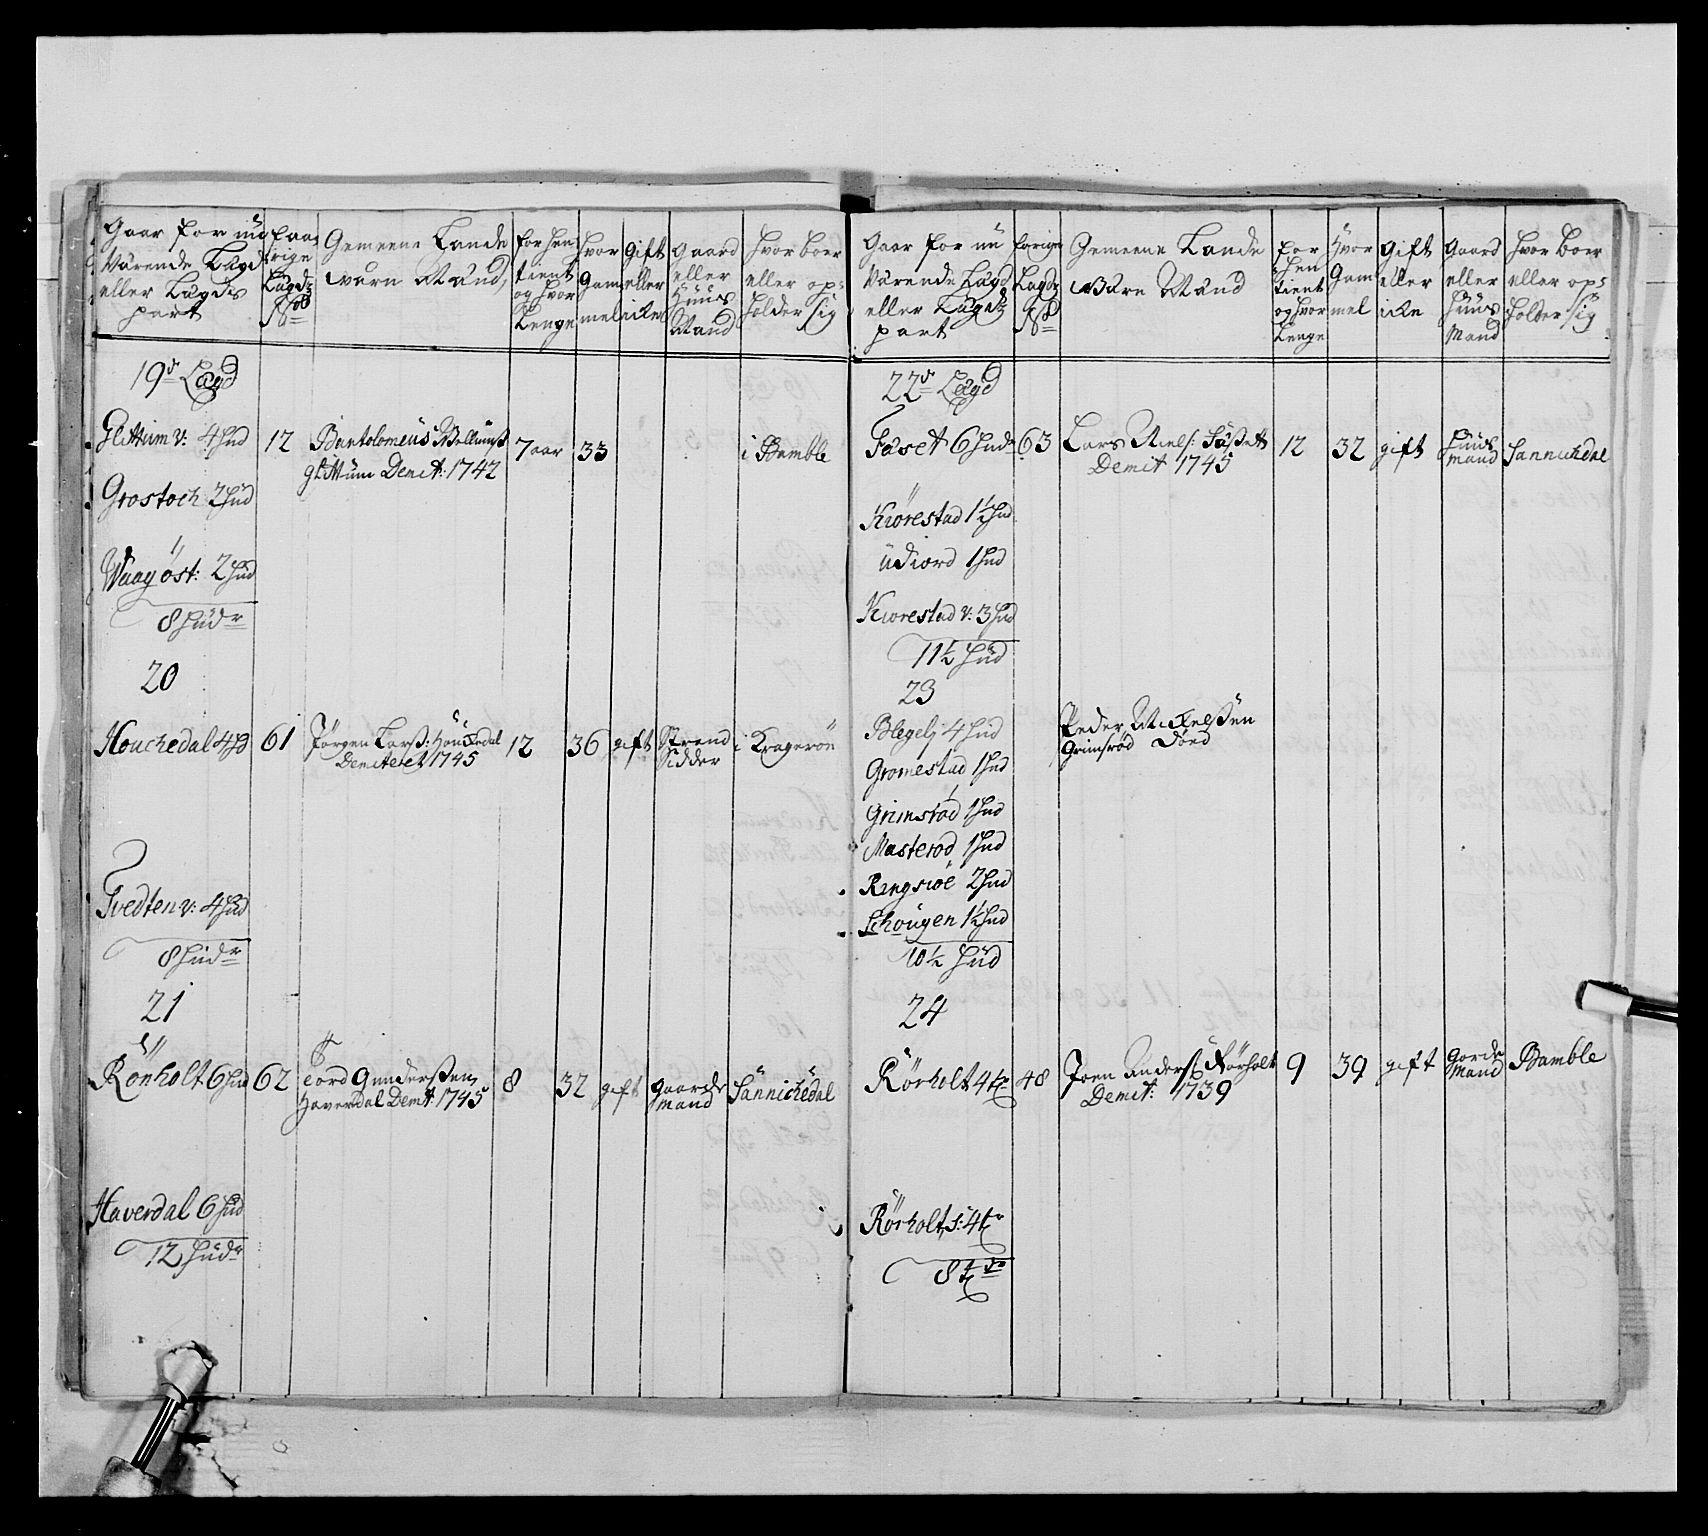 Gaar for nu
Värende Lægd
eller Lægdts
part
Faa
rige
Lægdts
No
Gemeene Lande
wærn Mænd,
for hen
tient
og hvor
Lenge
hvor
Gam
mel
Gift
eller
icke
Gaard
eller
Huus
Mand
hvor boer
eller op=
holder sig
19de Lægd
Glittum v: 4 hud
12
Bantolomeus Wollumsß
glittum Demit: 1742
7 aar
33
i Bamble
Grostoch 2 hud
Waag öst: 2 hud
8 hudr
20
Houchedal 4 hd
61
Jörgen Larß: Houchedal
Demiteret 1745
12
36
gift
Strand
Sidder
i Krageröe
Tvedten v: 4 hud
8 hudr
21
Rönholt 6 hud
62
Tord Gunderßen
Haverdal Demt: 1745
8
32
gift
gaards
mand
Sannichedal
Haverdal 6 hud
12 hudr
Gaar for nu
Värende Lægd
eller Lægdts
part
forige
Lægdts
No
Gemeene Lande
Wærn Mænd
for
hen
tient
og hvor
Lenge
Hvor
Gam
mel
Gift
eller
icke
Gaard
eller
Huus
Mand
hvor boer
eller op=
holder sig
22de Lægd
Faset 6 hudr
63
Lars Niels: Faßett
Demit 1745
12
32
gift
Huus
mand
Sannichdal
Kiörestad 1½ hud
Udiord 1 hud
Kiorestad v: 3 hud
11½ hud
23
Blegeli 4 hud
Peder Mickelßen
Grimsröd Döed
Gromestad 1 hud
Grimstad 1 hud
Masterod 1 hud
Ringsioe 2 hud
Schougen 1½ hud
10½ hud
24
Rörholt 4 tr
48
Joen Andersß Rörholt
Demit: 1739
9
39
gift
Gords
Mand
Bamble
Rörholt, s: 4 tr
8 tdr